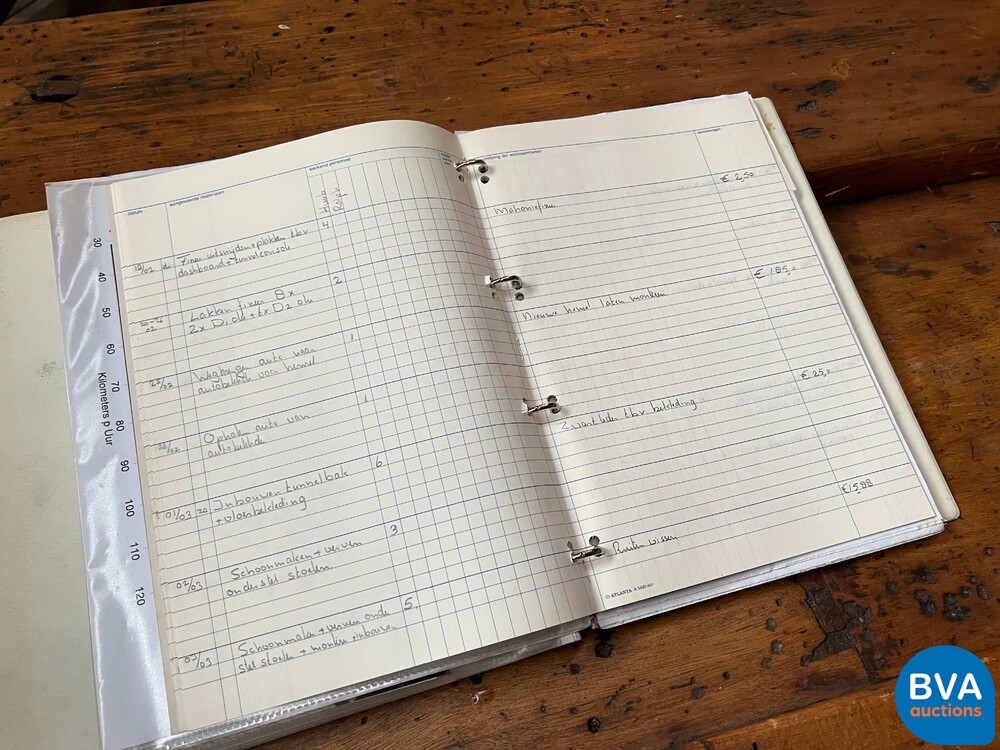 30
40
50
60
70
80
90
100
110
120
Kilometers p Uur
datum
aangewende materialen
werkend personeel
Huub
Ralph
18/02
Finer uitsnyden + plakken tbv
dashboard + tunnelconsole
4
Lakken finer 8x
2x D1 olie + 6x D2 olie
2
25/02
Wegbrengen auto naar
autobekleder voor hemel
1
28/02
Ophalen auto van
autobekleder
1
01/03
Inbouwen tunnelbak
+ vloerbekleding
6
02/03
Schoonmaken + verven
onderstel stoelen
3
03/03
Schoonmaken + verven onder
stel stoelen + monteren + inbouwen
5
der werkzaamheden
opmerkingen
Mahoniefineer
€ 2,50
Nieuwe hemel laten monteren
€ 185,-
Zwart leder tbv bekleding
€ 25,-
Ruiten wissen
€15,88
ATLANTA
BVA
auctions